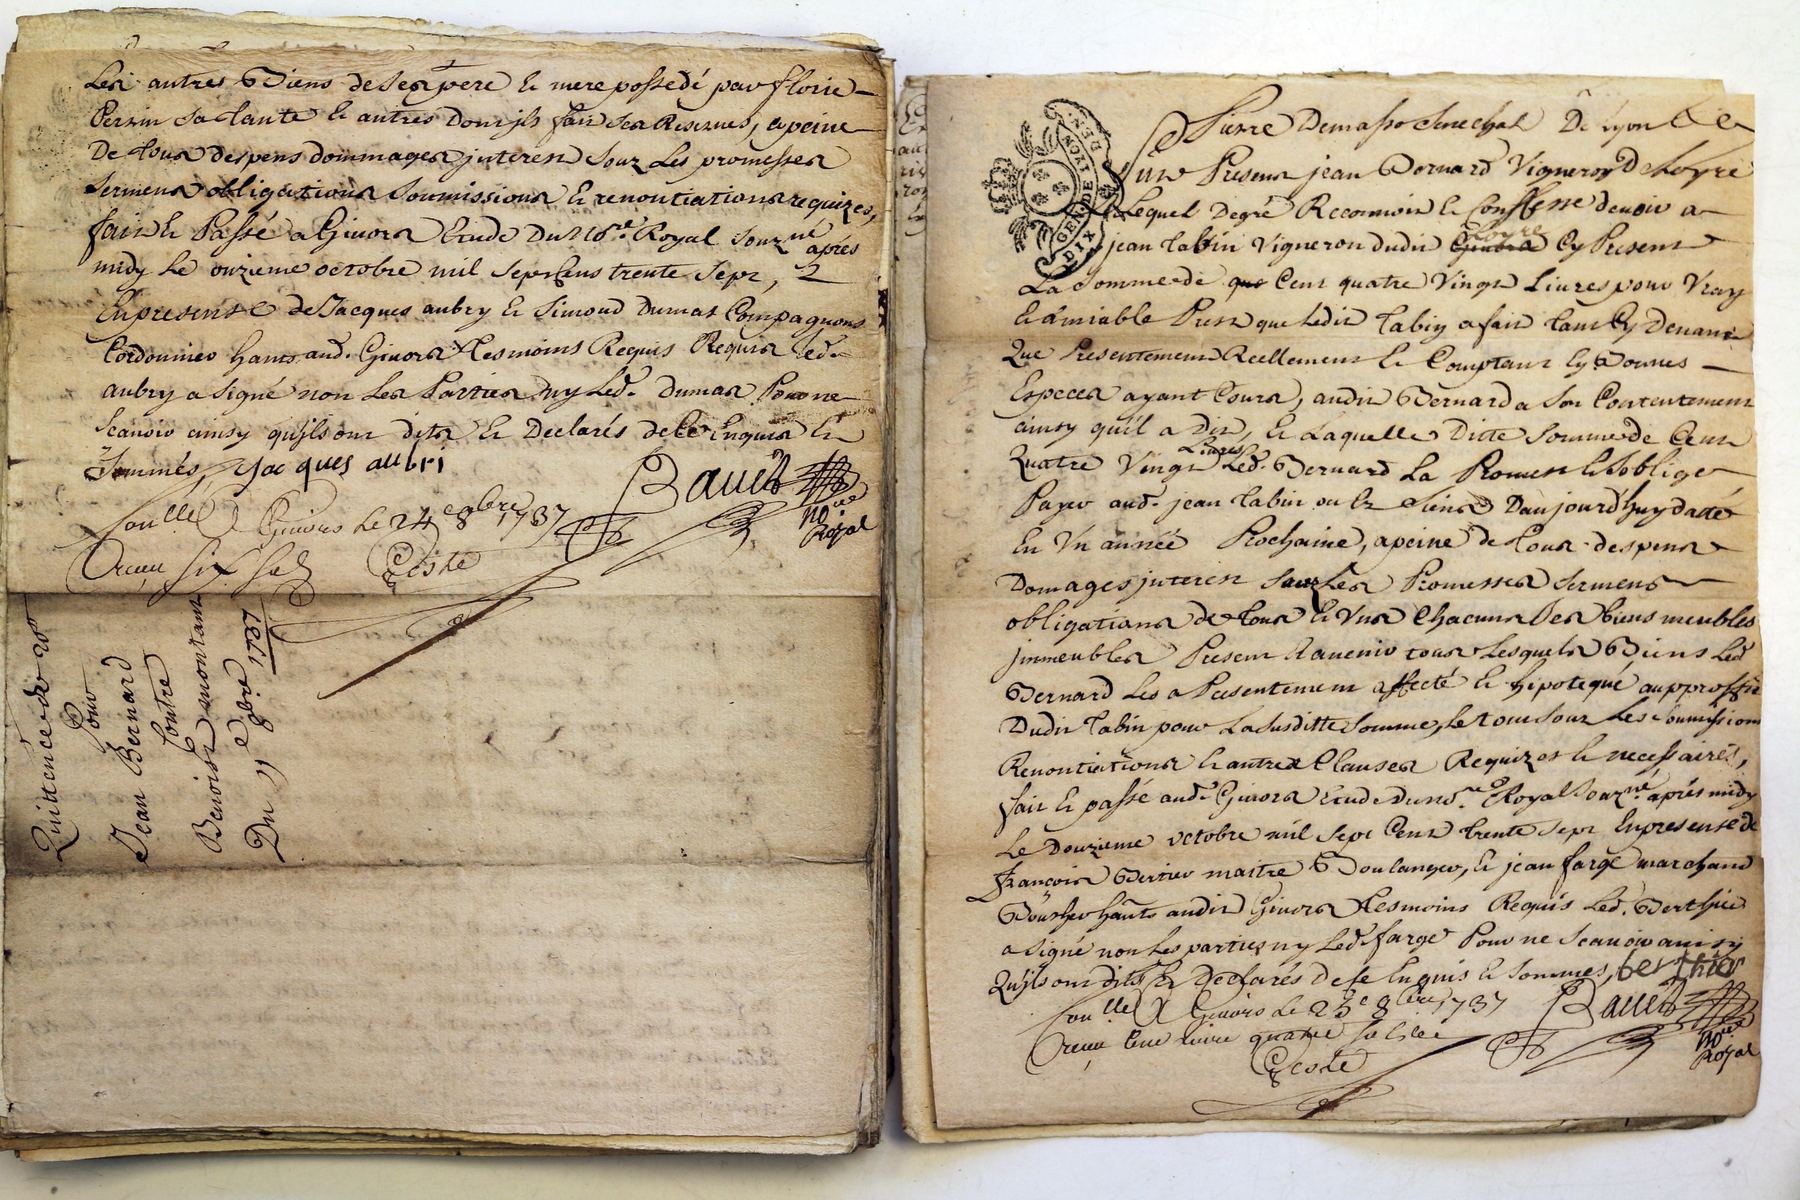 Les autres Biens de Ses pere & mere possedé par florie
Perrin Sa tante & autres dont jls fait Ses Reserves, apeine
De tous despens dommages jnterest Souz Les promesses
Sermens obligations Soumissions & renontiations requizes,
fait & Passé a Givors Etude Du no.re Royal Souz.né après
midy Le onzieme octobre mil Sept Cens trente Sept,
En presense de Jacques aubry & Simond Dumas Compagnons
Cordonnier hants aud. Givors tesmoins Requis Led.
aubry a Signé non Les Parties ny Led. Dumas Pour ne
Scavoir ainsy qu'jls ont dits & Declarés de Ce Enquis &
Sommés, Jacques aubri
Bauet
no.re
Royal
Con.llé a Givors Le 24e 8bre 1737
Receu Six Sols
Geste
Quittence de
Pour
Jean Bernard
Contre
Benoist montant
Du 11e 8bre 1737
GEN. DE LYON
DIX DEN.
Pierre Demasso Senechal De Lyon
Jean Bernard Vigneron D Loyre
Lequel Degré Reconnoit & Confesse devoir a
jean tabin Vigneron dudit Givors Loyre Cy Present
La Somme de que Cent quatre Vingt Livres pour Vray
& amiable Prest que Ledit tabin a fait tant Cy Devant
Que Presentement Reellement & Comptant En Bonnes
Especes ayant Cours, audit Bernard a Son Contentement
ainsy quil a Dit, & Laquelle Ditte Somme de Cent
Quatre Vingt Livres Led. Bernard La Promest & Soblige
Payer aud. jean tabin ou Es Siens Daujourdhuy datté
En Vn année Prochaine, a peine de tous despens
Domages jnterest Souz Les Promesses Sermens
obligations de tous & Vns Chacuns Ses biens meubles
jmmeubles Present & avenir tous Lesquels Biens Led
Bernard Les a Presentement affecté & hipotequé au proffit
Dudit tabin pour La Susditte Somme, Le tout Souz Les Soumissions
Renontiations & autres Clauses Requizes & necessaires,
fait & passé aud. Givors Etude Du no.re Royal Souz.né après midy
Le Douzieme octobre mil Sept Cent trente Sept En presense de
françois Bertier maitre Boulanger, & jean farge marchand
Boucher hants audit Givors tesmoins Requis Led. Berthier
a Signé non Les parties ny Led. farge Pour ne Scavoir ainsy
Qu'jls ont dits & Declarés de Ce Enquis & Sommés, berthier
Bauet
no.re
Royal
Con.llé a Givors Le 23e 8bre 1737
Receu Une Livre quatre Sols
Geste